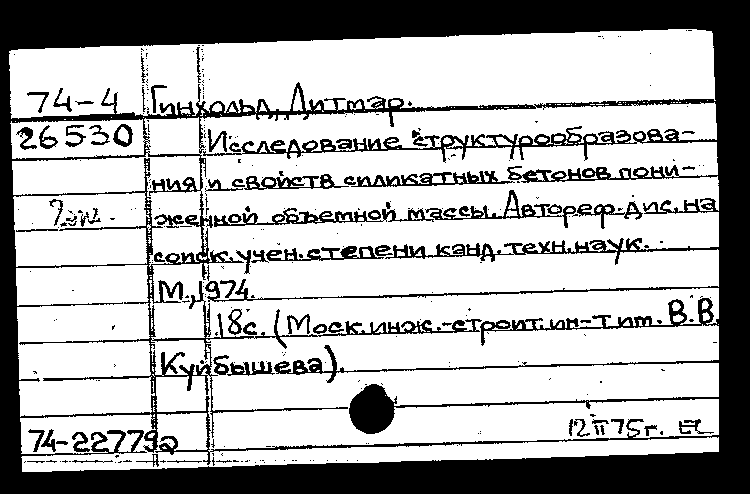 74-4 Гинхольд, Дитмар.
26530 Исследование структурообразова-
ния и свойств силикатных бетонов пони-
женной объемной массы. Автореф. дис. на
соиск. учен. степени канд. техн. наук.
М., 1974.
18с. (Моск. инж.-строит. ин-т им. В.В.
Куйбышева).
12 II 75г.
74-22779а